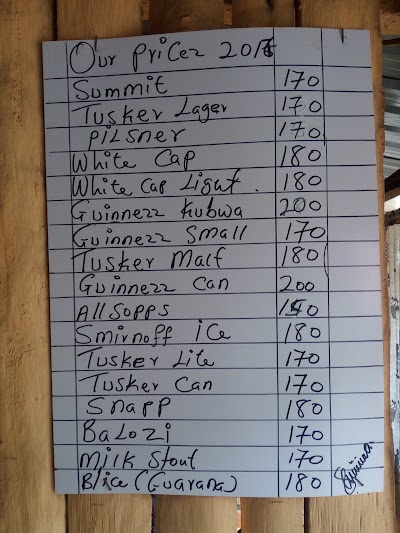 Our Pricez
Summit 170
Tusker Lager 170
PiLSNER 170
White Cap 180
White Cap Light. 180
Guinnezz Kubwa 200
Guinnezz Small 170
Tusker Malt 180
Guinnezz Can 200
AllSopps
Smirnoff iCe 180
Tusker Lite 170
Tusker Can 170
Snapp 180
BaLozi 170
Milk Stout 170
B/ice (Guarana) 180